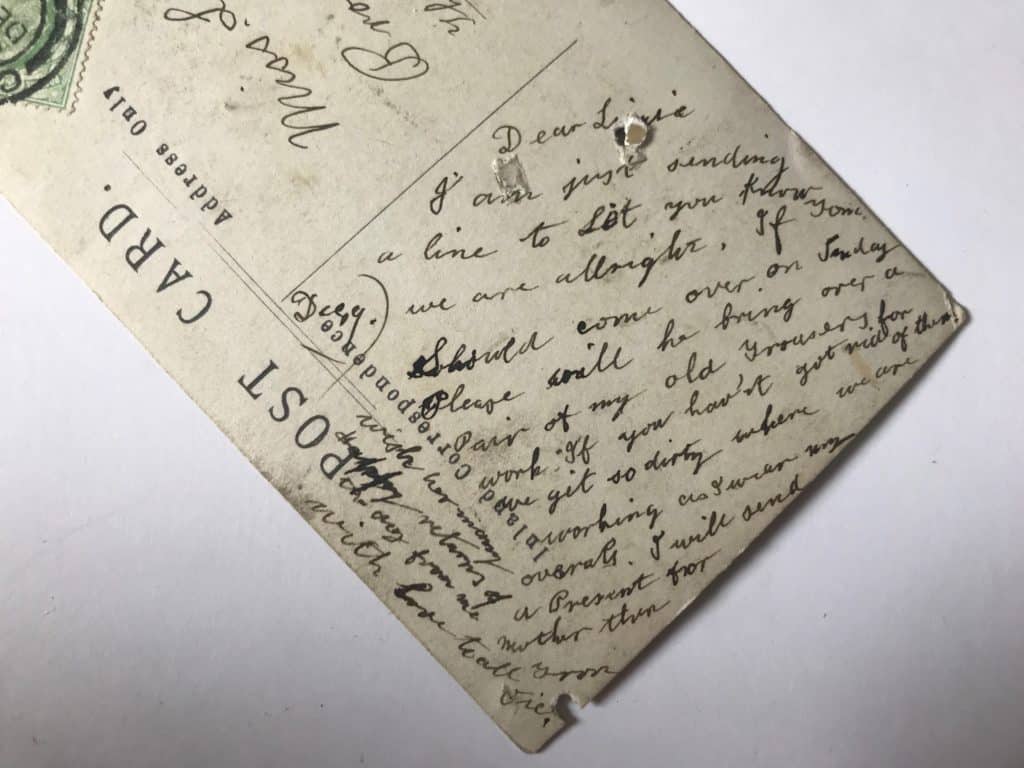 POST CARD.
Address Only
Inland Correspondence
Miss L
Dear
I am just sending
a line to Let you Know
we are allright. If Tom
Should come over on Sunday
Please will he bring over a
Pair of my old Trousers for
work If you hav't got rid of them
we git so dirty where we are
working as I wear my
overals. I will send
a Present for
mother then
wish her many
happy returns of
the day from me
with love to all From
Vic,